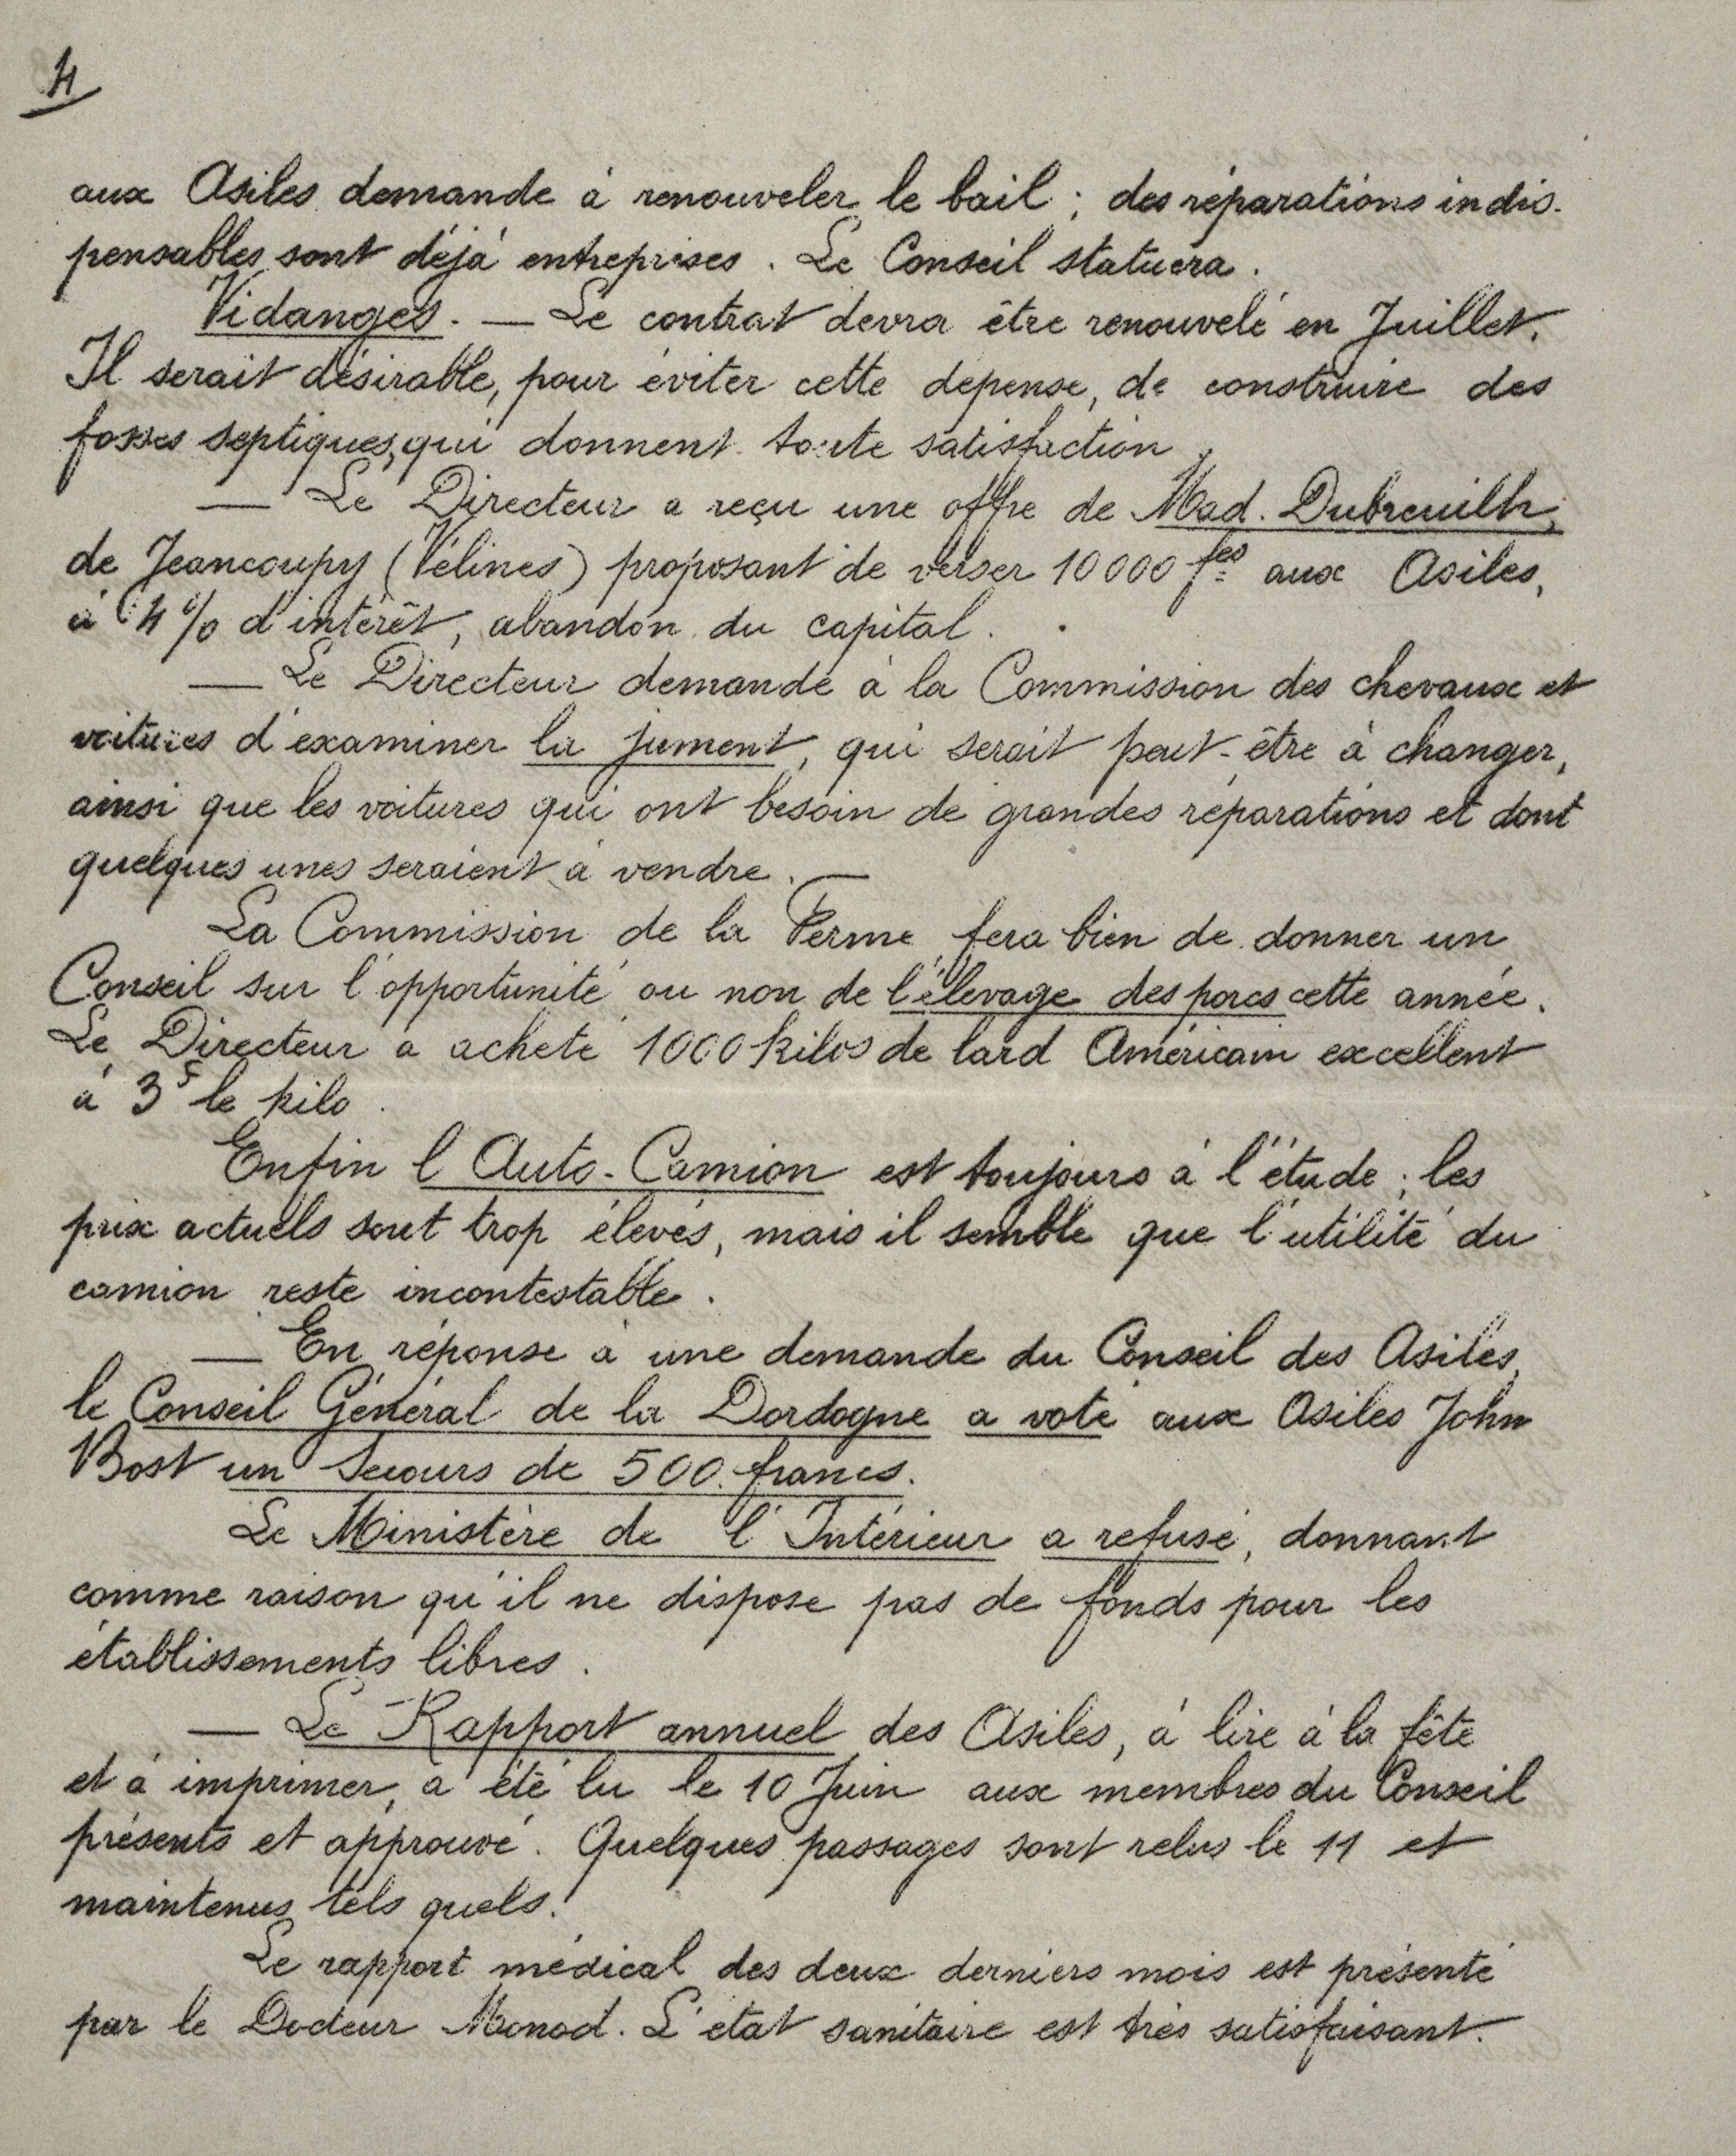 4
aux Asiles demande à renouveler le bail ; des réparations indis-
pensables sont déjà entreprises. Le Conseil statuera.
Vidanges. — Le contrat devra être renouvelé en Juillet.
Il serait désirable, pour éviter cette dépense, de construire des
fosses septiques, qui donnent toute satisfaction.
— Le Directeur a reçu une offre de Mad. Dubreuilh,
de Jeancoupy (Vélines) proposant de verser 10000 fcs aux Asiles,
à 4% d'intérêt, abandon du capital.
— Le Directeur demande à la Commission des chevaux et
voitures d'examiner la jument, qui serait peut-être à changer,
ainsi que les voitures qui ont besoin de grandes réparations et dont
quelques unes seraient à vendre. —
La Commission de la Ferme fera bien de donner un
Conseil sur l'opportunité ou non de l'élevage des porcs cette année.
Le Directeur a acheté 1000 kilos de lard Américain excellent
à 3f le kilo.
Enfin l'Auto-Camion est toujours à l'étude ; les
prix actuels sont trop élevés, mais il semble que l'utilité du
camion reste incontestable.
— En réponse à une demande du Conseil des Asiles,
le Conseil Général de la Dordogne a voté aux Asiles John
Bost un Secours de 500 francs.
Le Ministère de l'Intérieur a refusé, donnant
comme raison qu'il ne dispose pas de fonds pour les
établissements libres.
— Le Rapport annuel des Asiles, à lire à la fête
et à imprimer, a été lu le 10 Juin aux membres du Conseil
présents et approuvé. Quelques passages sont relus le 11 et
maintenus tels quels.
Le rapport médical des deux derniers mois est présenté
par le Docteur Monod. L'état sanitaire est très satisfaisant.